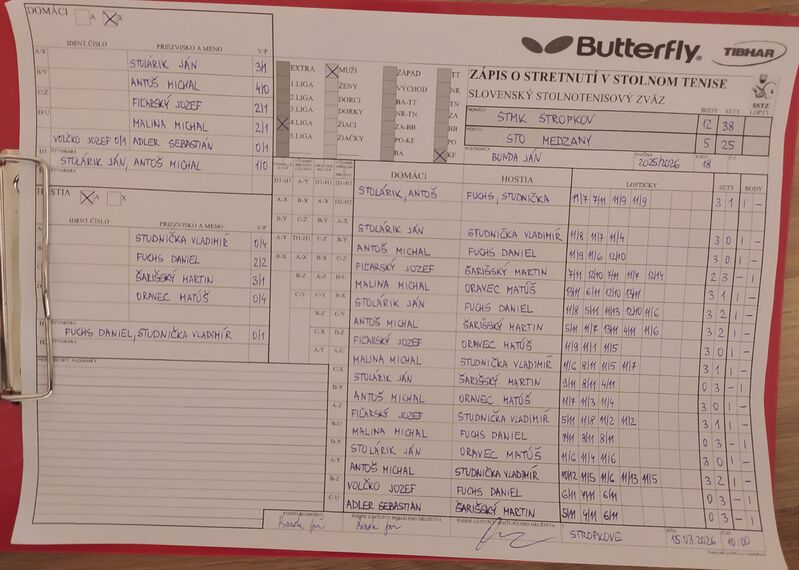 DOMÁCI A X
Butterfly TIBHAR
ZÁPIS O STRETNUTÍ V STOLNOM TENISE
SLOVENSKÝ STOLNOTENISOVÝ ZVÄZ
SSTZ
IDENT.ČÍSLO PRIEZVISKO A MENO V/P
A/X STOLÁRIK JÁN 3/1
B/Y ANTOŠ MICHAL 4/0
C/Z FIĽARSKÝ JOZEF 2/1
D/U MALINA MICHAL 2/1
VOLČKO JOZEF 0/1 ADLER SEBASTIÁN 0/1
STOLÁRIK JÁN, ANTOŠ MICHAL 1/0
EXTRA MUŽI ZÁPAD TT
1.LIGA ŽENY VÝCHOD NR
2.LIGA DORCI BA-TT TN
3.LIGA DORKY NR-TN ZA
4.LIGA ŽIACI ZA-BB BB
5.LIGA ŽIAČKY PO-KE PO
BA KE
DOMÁCI STMK STROPKOV BODY 12 SETY 38 LOPTY
HOSTIA STO MEDZANY 5 25
BUNDA JÁN SEZÓNA 2025/2026 KOLO 18
HOSTIA A X
IDENT.ČÍSLO PRIEZVISKO A MENO V/P
STUDNIČKA VLADIMÍR 0/4
FUCHS DANIEL 2/2
ŠARIŠSKÝ MARTIN 3/1
ORAVEC MATÚŠ 0/4
FUCHS DANIEL, STUDNIČKA VLADIMÍR 0/1
DOMÁCI HOSTIA LOPTIČKY SETY BODY
STOLÁRIK, ANTOŠ FUCHS, STUDNIČKA 11/7 7/11 11/9 11/9 3 1 1 -
STOLÁRIK JÁN STUDNIČKA VLADIMÍR 11/8 11/7 11/4 3 0 1 -
ANTOŠ MICHAL FUCHS DANIEL 11/9 11/6 12/10 3 0 1 -
FIĽARSKÝ JOZEF ŠARIŠSKÝ MARTIN 7/11 12/10 7/11 11/7 12/14 2 3 - 1
MALINA MICHAL ORAVEC MATÚŠ 13/11 6/11 12/10 13/11 3 1 1 -
STOLÁRIK JÁN FUCHS DANIEL 11/8 5/11 11/13 12/10 11/6 3 2 1 -
ANTOŠ MICHAL ŠARIŠSKÝ MARTIN 5/11 11/7 13/11 4/11 11/6 3 2 1 -
FIĽARSKÝ JOZEF ORAVEC MATÚŠ 11/9 11/1 11/5 3 0 1 -
MALINA MICHAL STUDNIČKA VLADIMÍR 11/6 8/11 11/5 11/7 3 1 1 -
STOLÁRIK JÁN ŠARIŠSKÝ MARTIN 9/11 8/11 4/11 0 3 - 1
ANTOŠ MICHAL ORAVEC MATÚŠ 11/7 11/3 11/4 3 0 1 -
FIĽARSKÝ JOZEF STUDNIČKA VLADIMÍR 5/11 11/8 11/2 11/2 3 1 1 -
MALINA MICHAL FUCHS DANIEL 7/11 3/11 8/11 0 3 - 1
STOLÁRIK JÁN ORAVEC MATÚŠ 11/6 11/4 11/6 3 0 1 -
ANTOŠ MICHAL STUDNIČKA VLADIMÍR 10/12 11/5 11/6 11/13 11/5 3 2 1 -
VOLČKO JOZEF FUCHS DANIEL 6/11 7/11 6/11 0 3 - 1
ADLER SEBASTIAN ŠARIŠSKÝ MARTIN 5/11 4/11 6/11 0 3 - 1
PODPIS ZÁSTUPCU DOMÁCEHO DRUŽSTVA
Bunda Ján Bunda Ján STROPKOVE 15.03.2026 10:00